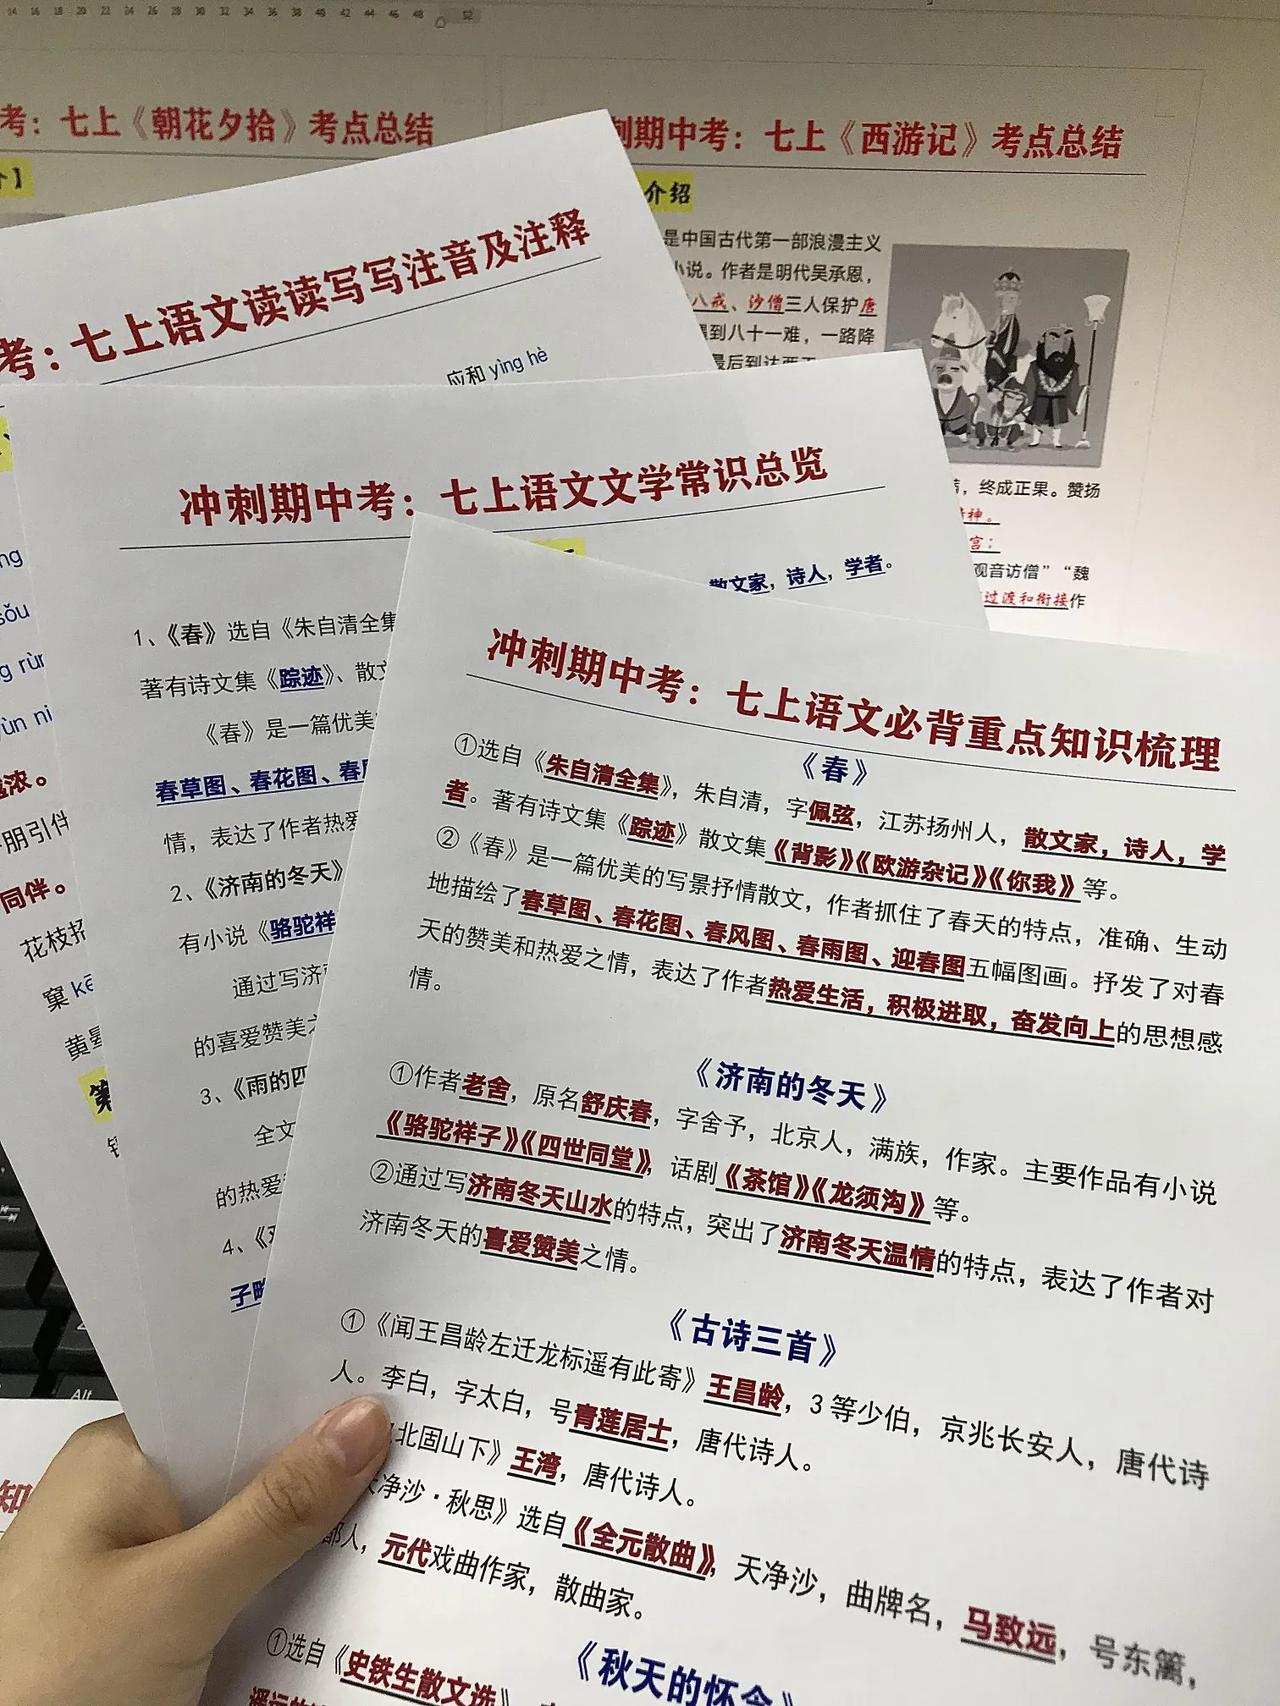 考：七上《朝花夕拾》考点总结
期中考：七上《西游记》考点总结
介绍
是中国古代第一部浪漫主义
小说。作者是明代吴承恩，
八戒、沙僧三人保护唐
到八十一难，一路降
最后到达西天
，终成正果。赞扬
精神。
宫：
观音访僧”“魏
过渡和衔接作
考：七上语文读读写写注音及注释
应和 yìng hè
冲刺期中考：七上语文文学常识总览
散文家，诗人，学者。
1、《春》选自《朱自清全集
著有诗文集《踪迹》、散文
《春》是一篇优美
春草图、春花图、春
情，表达了作者热爱
2、《济南的冬天》
有小说《骆驼祥
通过写济
的喜爱赞美之
3、《雨的四
全文
的热爱
4、
冲刺期中考：七上语文必背重点知识梳理
《春》
①选自《朱自清全集》，朱自清，字佩弦，江苏扬州人，散文家，诗人，学
者。著有诗文集《踪迹》散文集《背影》《欧游杂记》《你我》等。
②《春》是一篇优美的写景抒情散文，作者抓住了春天的特点，准确、生动
地描绘了春草图、春花图、春风图、春雨图、迎春图五幅图画。抒发了对春
天的赞美和热爱之情，表达了作者热爱生活，积极进取，奋发向上的思想感
情。
《济南的冬天》
①作者老舍，原名舒庆春，字舍予，北京人，满族，作家。主要作品有小说
《骆驼祥子》《四世同堂》，话剧《茶馆》《龙须沟》等。
②通过写济南冬天山水的特点，突出了济南冬天温情的特点，表达了作者对
济南冬天的喜爱赞美之情。
《古诗三首》
①《闻王昌龄左迁龙标遥有此寄》王昌龄，3等少伯，京兆长安人，唐代诗
人。李白，字太白，号青莲居士，唐代诗人。
北固山下》王湾，唐代诗人。
天净沙·秋思》选自《全元散曲》，天净沙，曲牌名，马致远，号东篱，
都人，元代戏曲作家，散曲家。
《秋天的怀念》
①选自《史铁生散文选》
sǒu
同伴。
花枝招
黄晕
Alt